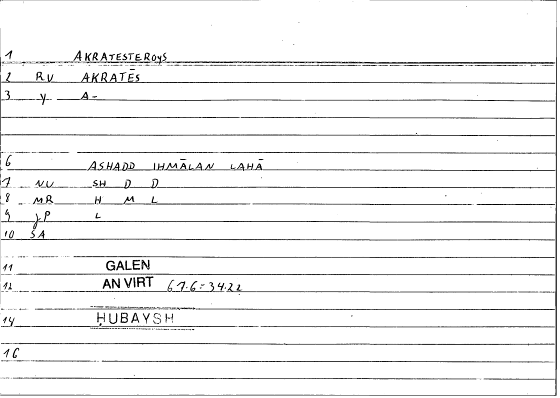 1 AKRATESTEROYS
2 RV AKRATĒS
3 y A-
6 ASHADD IHMĀLAN LAHĀ
7 NV SH D D
8 MR H M L
9 JP L
10 SA
11 GALEN
12 AN VIRT 67.6=34.22
14 ḤUBAYSH
16